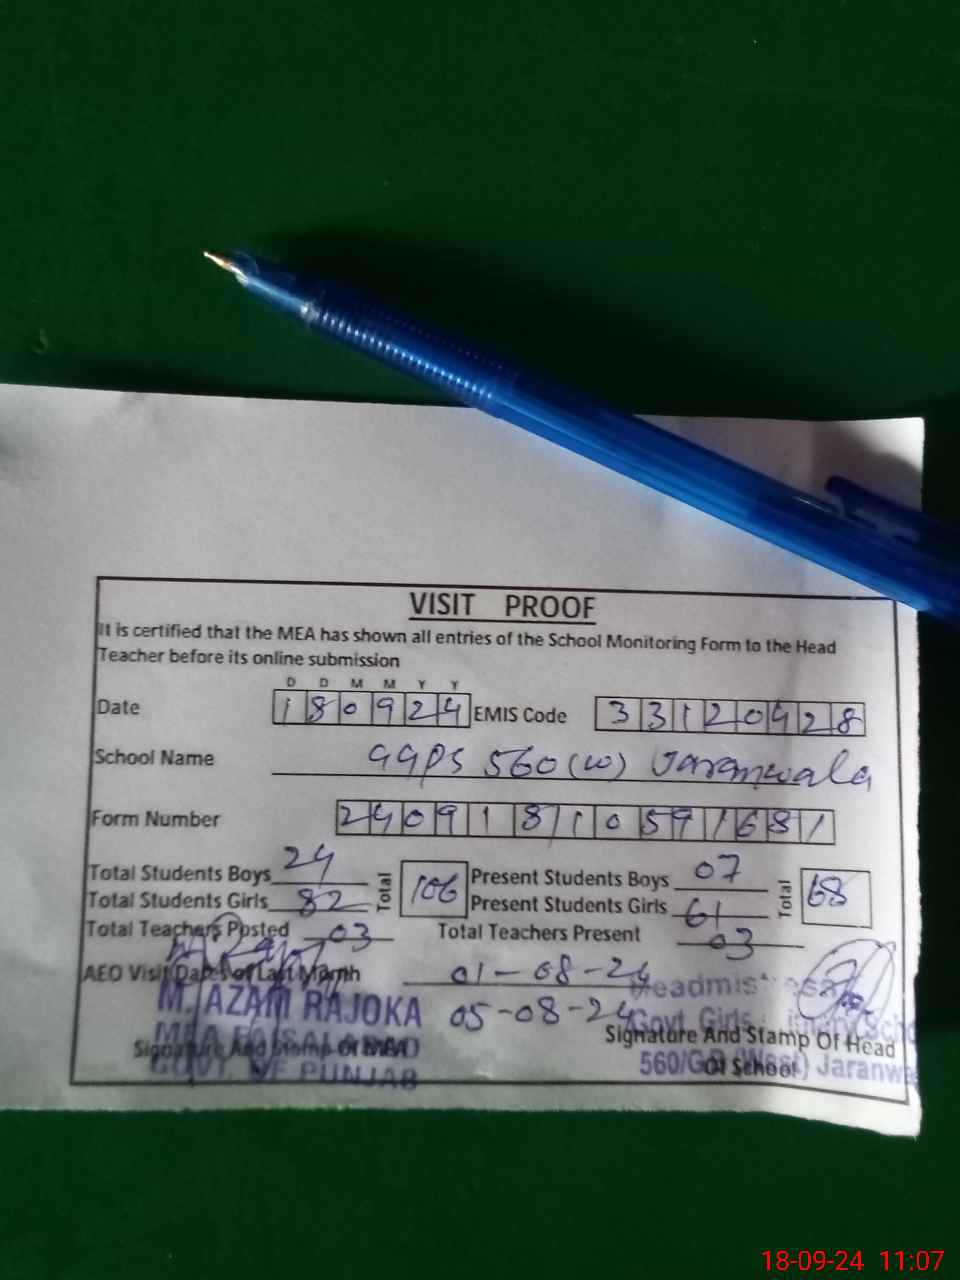 VISIT PROOF
It is certified that the MEA has shown all entries of the School Monitoring Form to the Head
Teacher before its online submission
D D M M Y Y
Date 180924 EMIS Code 33120428
School Name GGPS 560 (W) Jaranwala
Form Number 24091810591681
Total Students Boys 24 Total 106 Present Students Boys 07 Total 68
Total Students Girls 82 Present Students Girls 61
Total Teachers Posted 03 Total Teachers Present 03
AEO Visit Dates of Last Month 01-08-24
05-08-24
M. AZAM RAJOKA
MEA FAISALABAD
GOVT OF PUNJAB
Signature And Stamp Of MEA
Headmistress
Govt. Girls
560/GB (West) Jaranwa
Signature And Stamp Of Head
Of School
18-09-24 11:07